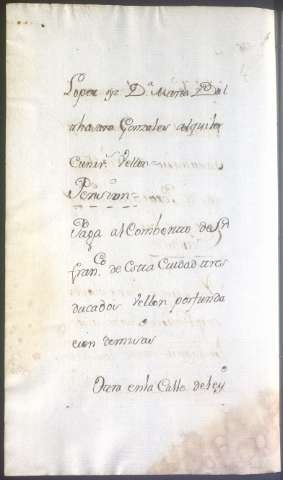 Lopez que Dª Maria
Gonzales alquiler
vellon =
Pension =
Paga al Combento de Sn
Franco de esta Ciudad tres
ducados vellon por funda
cion de misas
Otra en la Calle de